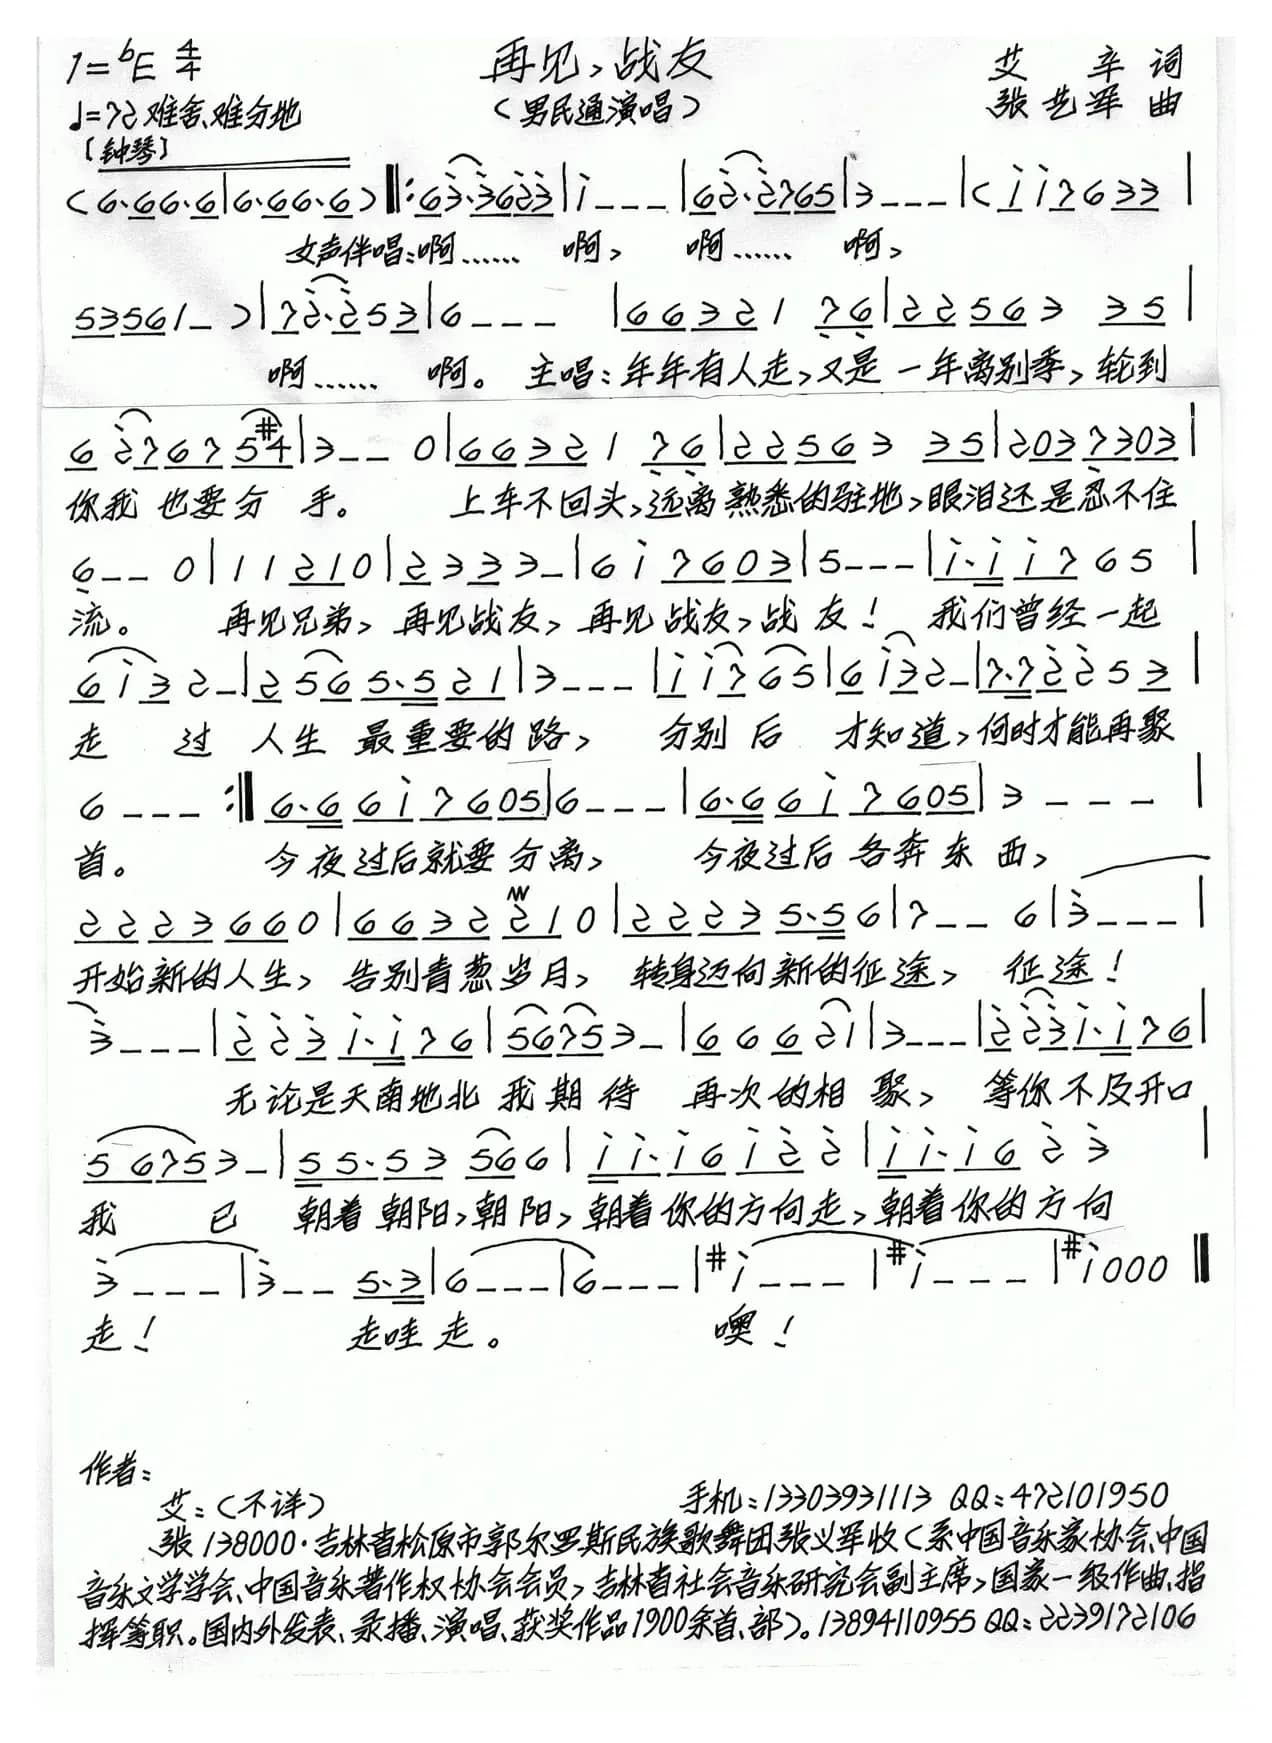 1=ᵇE 4/4 再见,战友 艾 辛 词
♩=72 难舍、难分地 (男民通演唱) 张艺军 曲
[钟琴]
(6·66·6|6·66·6)‖:63·3623|i---|62·2765|3---|(ii7633|
女声伴唱:啊…… 啊, 啊…… 啊,
53561-)|72·253|6---|66321 76|22563 35|
啊…… 啊。 主唱:年年有人走,又是一年离别季,轮到
627675#4|3--0|66321 76|22563 35|2037303|
你我也要分手。 上车不回头,远离熟悉的驻地,眼泪还是忍不住
6--0|11210|2333-|6i7603|5---|i·ii765|
流。 再见兄弟,再见战友,再见战友,战友! 我们曾经一起
6i32-|2565·521|3---|ii765|6i32-|7·72253|
走 过 人生 最重要的路, 分别后 才知道,何时才能再聚
6---:‖6·66i7605|6---|6·66i7605|3---|
首。 今夜过后就要分离, 今夜过后各奔东西,
2223660|6632210|22235·56|7--6|3---|
开始新的人生, 告别青葱岁月, 转身迈向新的征途, 征途!
3---|223i·i76|56753-|66621|3---|223i·i76|
无论是天南地北 我期待 再次的相聚, 等你不及开口
56753-|55·53566|ii·i6i22|ii·i623|
我 已 朝着朝阳,朝阳,朝着你的方向走,朝着你的方向
3---|3--5·3|6---|6---|#i---|#i---|#i000‖
走! 走哇走。 噢!
作者:
艾:(不详) 手机:13303931113 QQ:472101950
张138000·吉林省松原市郭尔罗斯民族歌舞团张义军收(系中国音乐家协会、中国
音乐文学学会、中国音乐著作权协会会员,吉林省社会音乐研究会副主席,国家一级作曲、指
挥等职。国内外发表、录播、演唱、获奖作品1900余首、部)。13894110955 QQ:2239172106